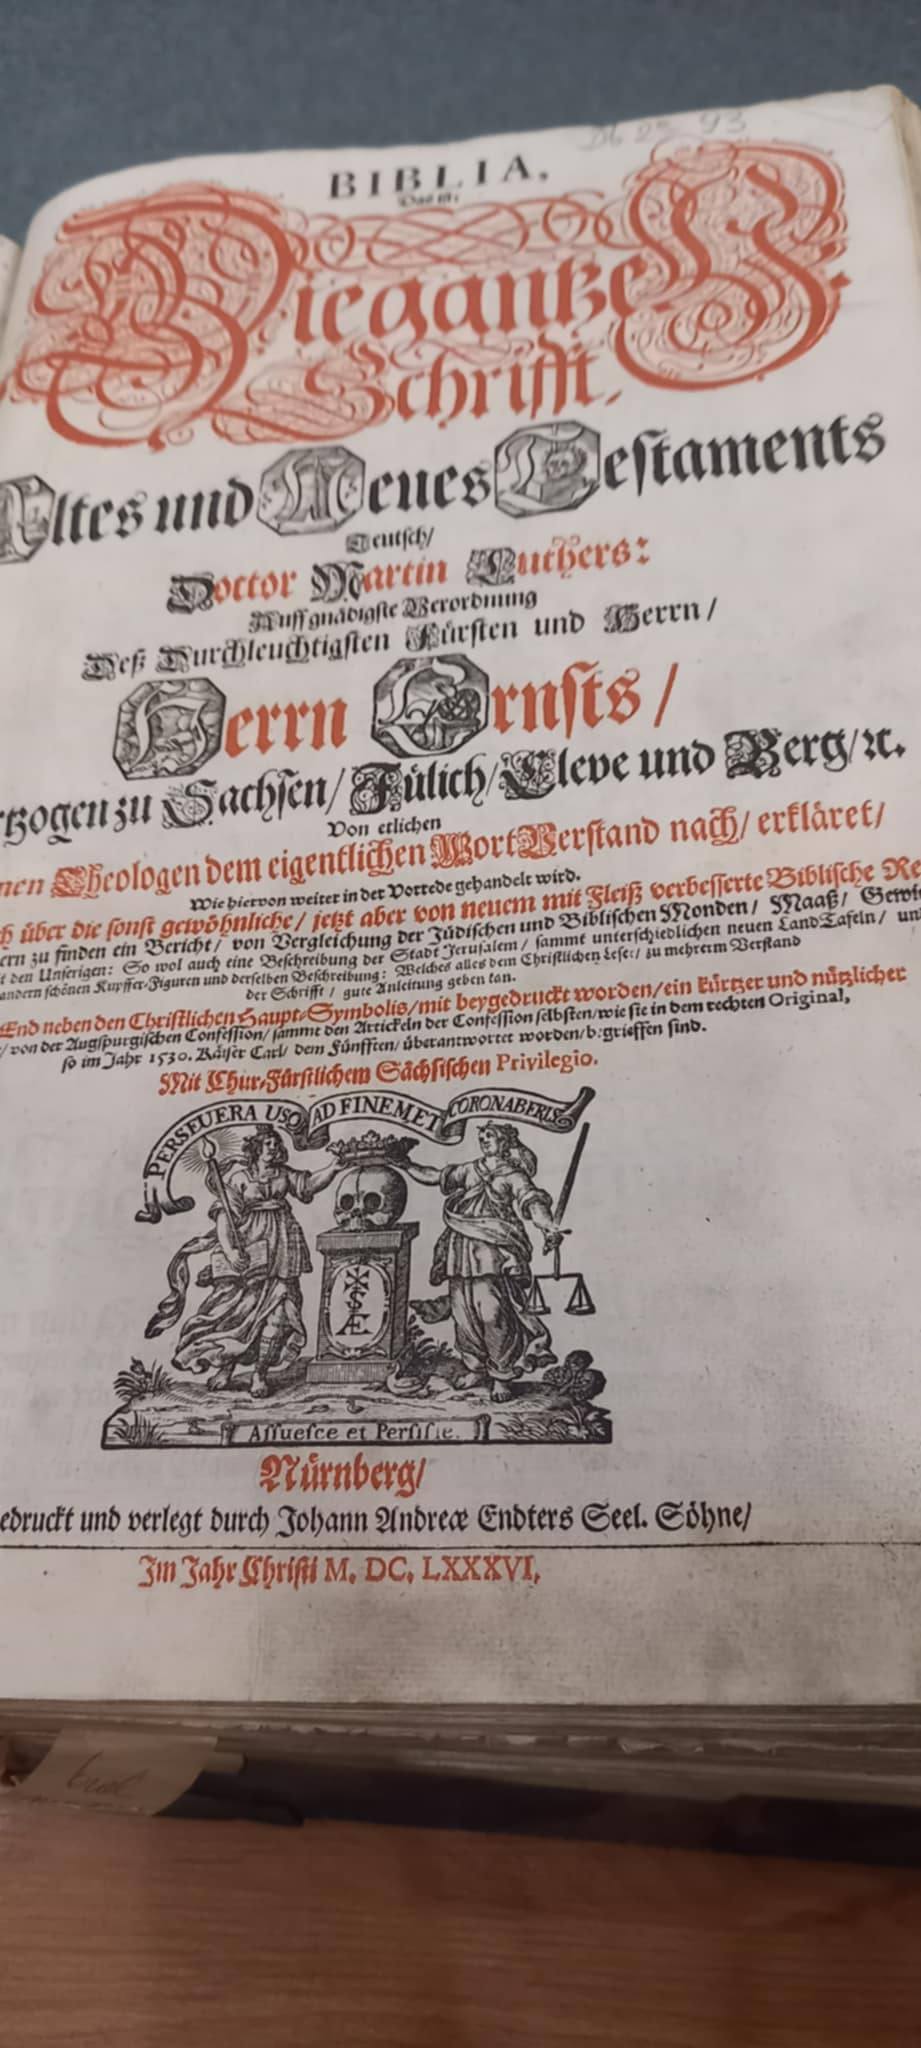 BIBLIA,
Das ist:
Die gantze H.
Schrifft,
Altes und Neues Testaments
Teutsch/
Doctor Martin Luthers:
Auff gnädigste Verordnung
Deß Durchleuchtigsten Fürsten und Herrn/
Herrn Ernsts/
tzogen zu Sachsen/ Jülich/ Cleve und Berg/ ꝛc.
Von etlichen
nen Theologen dem eigentlichen Wort-Verstand nach/ erkläret/
Wie hiervon weiter in der Vorrede gehandelt wird.
ch über die sonst gewöhnliche/ jetzt aber von neuem mit Fleiß verbesserte Biblische Re
ern zu finden ein Bericht/ von Vergleichung der Jüdischen und Biblischen Monden/ Maaß/ Gewi
it den Unserigen: So wol auch eine Beschreibung der Stadt Jerusalem/ sammt unterschiedlichen neuen Land-Tafeln/ un
andern schönen Kupffer-Figuren und derselben Beschreibung: Welches alles dem Christlichen Leser/ zu mehrerm Verstand
der Schrifft/ gute Anleitung geben kan.
Und neben den Christlichen Haupt-Symbolis/ mit beygedruckt worden/ ein kürtzer und nützlicher
/ von der Augspurgischen Confession/ sammt den Artickeln der Confession selbsten/ wie sie in dem rechten Original,
so im Jahr 1530. Käiser Carl/ dem Fünfften/ überantwortet worden/ begrieffen sind.
Mit Chur-Fürstlichem Sächsischen Privilegio.
PERSEVERA USQ AD FINEM ET CORONABERIS
Assuesce et Persiste.
Nürnberg/
edruckt und verlegt durch Johann Andreæ Endters Seel. Söhne/
Im Jahr Christi M. DC. LXXXVI.